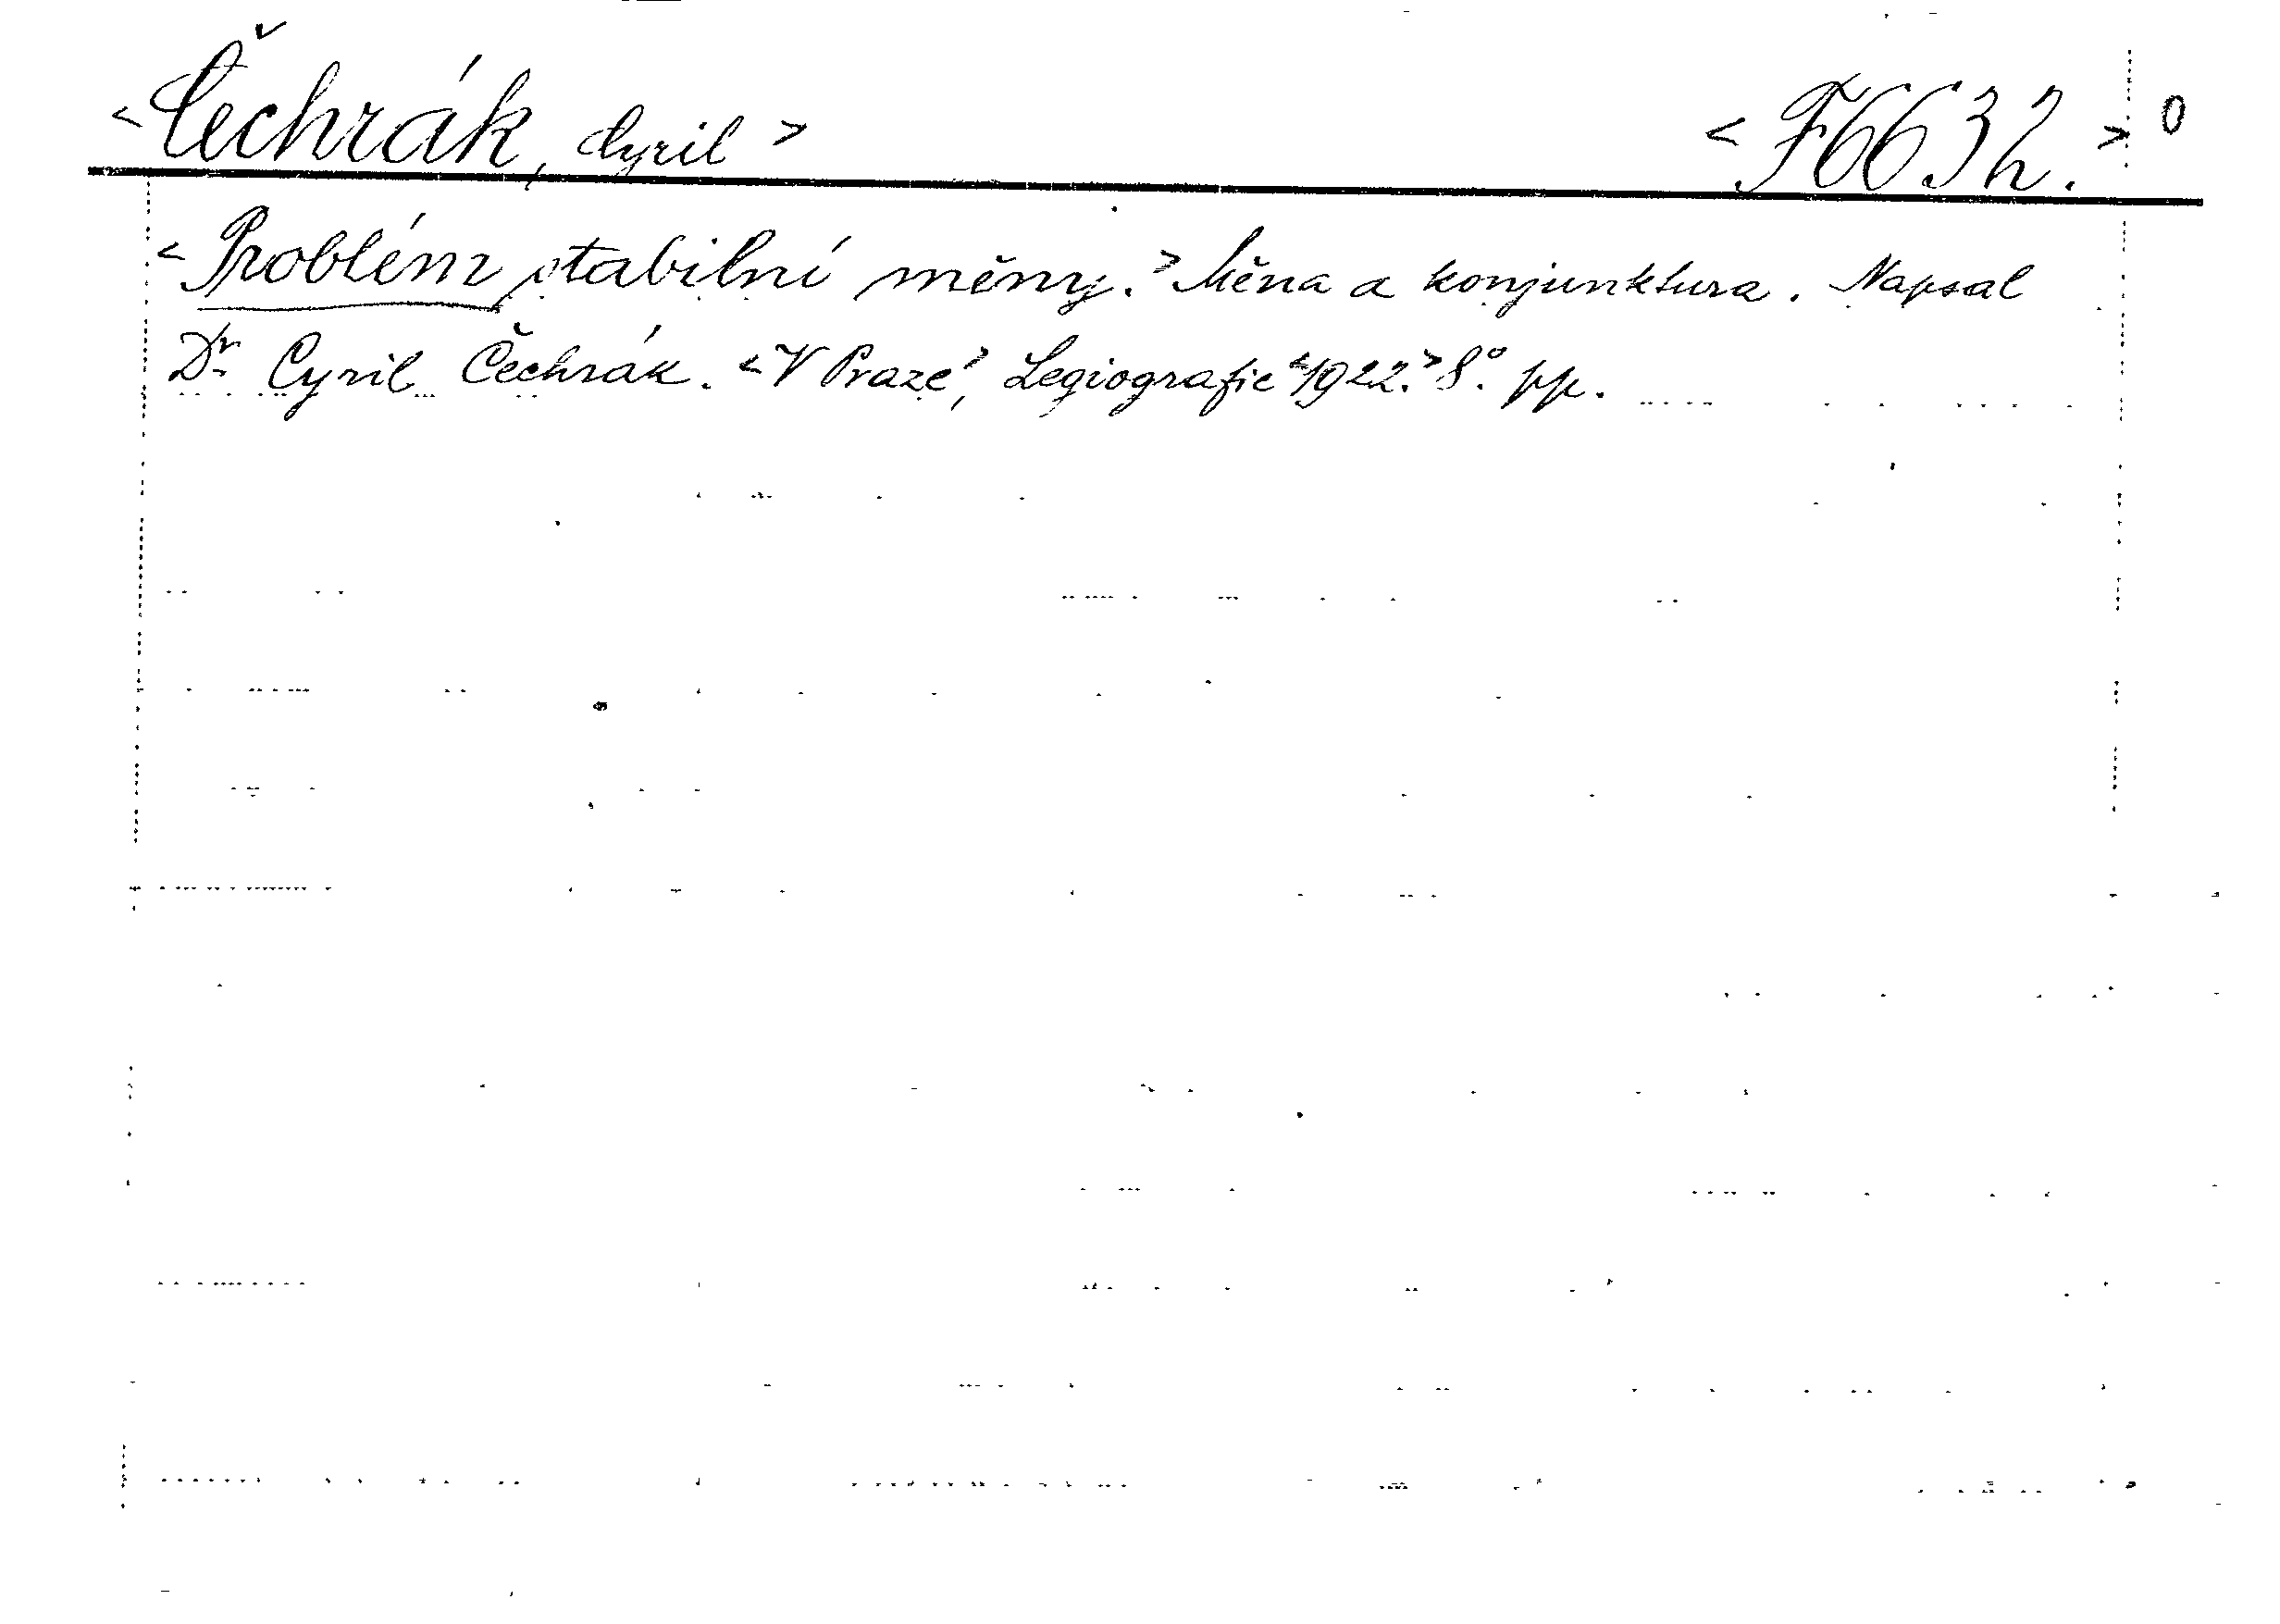 <Čechrák, Cyril> <F6632.> 0
<Problém stabilní měny.> Měna a konjunktura. Napsal
Dr Cyril Čechrák. <V Praze,> Legiografie <1922.> 8°. pp.